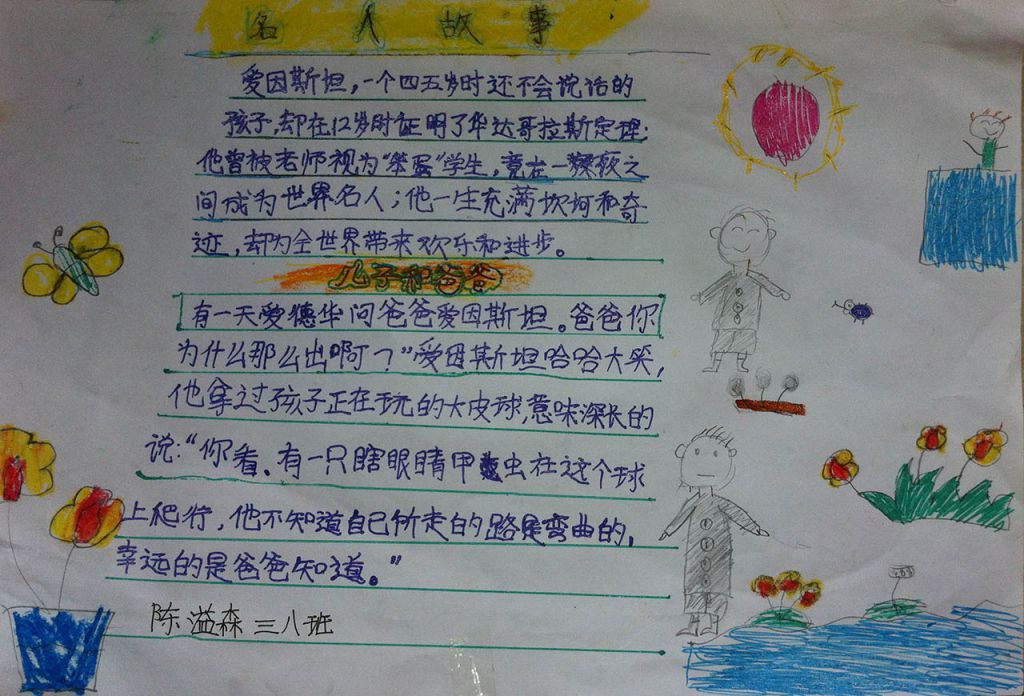 名人故事
爱因斯坦，一个四五岁时还不会说话的
孩子，却在12岁时证明了毕达哥拉斯定理；
他曾被老师视为“笨蛋”学生，竟在一
间成为世界名人；他一生充满坎坷和奇
迹，却为全世界带来欢乐和进步。
儿子和爸爸
有一天爱德华问爸爸爱因斯坦。爸爸你
为什么那么出啊？”爱因斯坦哈哈大笑，
他拿过孩子正在玩的大皮球，意味深长的
说：“你看、有一只瞎眼睛甲虫在这个球
上爬行，他不知道自己所走的路是弯曲的，
幸远的是爸爸知道。”
陈溢森三八班